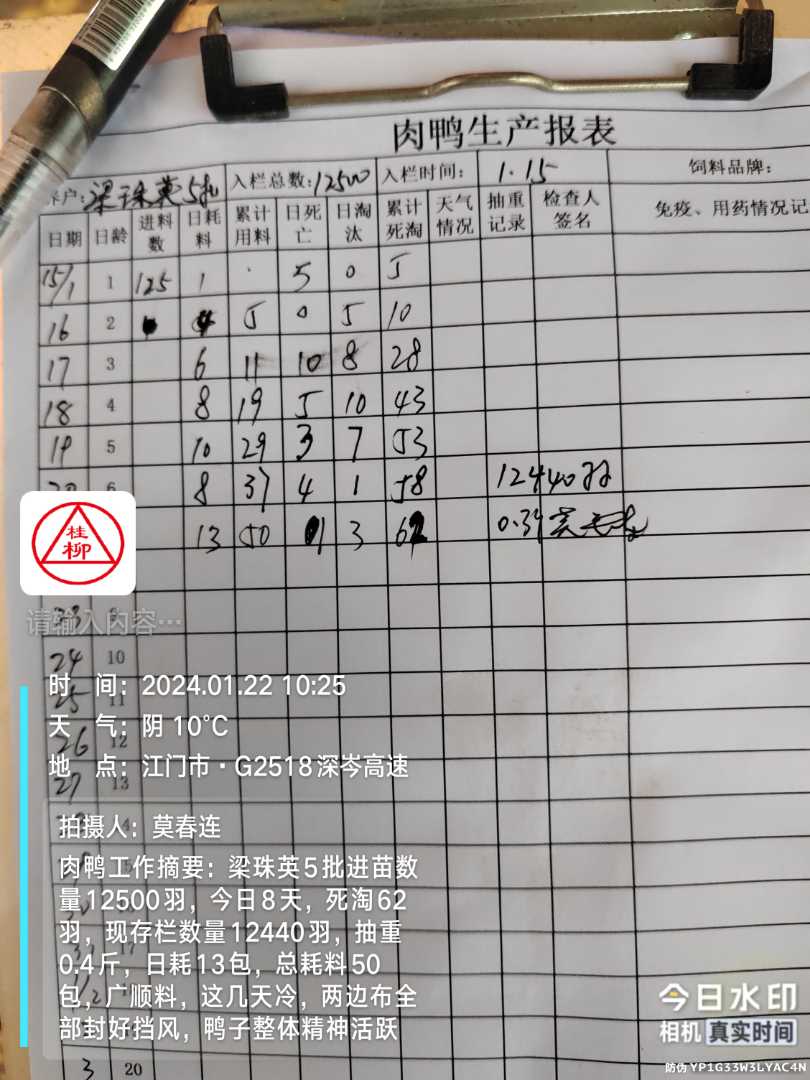 肉鸭生产报表
养户: 梁珠英5批 入栏总数:12500 入栏时间: 1.15 饲料品牌:
日期 日龄 进料数 日耗料 累计用料 日死亡 日淘汰 累计死淘 天气情况 抽重记录 检查人签名 免疫、用药情况记
15/1 1 125 1 5 0 5
16 2 4 5 0 5 10
17 3 6 11 10 8 28
18 4 8 19 5 10 43
19 5 10 29 3 7 53
20 6 8 37 4 1 58 12440羽
13 50 1 3 62 0.39
桂柳
请输入内容…
23 9
24 10
25 11
26 12
27 13
时 间: 2024.01.22 10:25
天 气: 阴 10℃
地 点: 江门市·G2518深岑高速
拍摄人: 莫春连
肉鸭工作摘要: 梁珠英5批进苗数
量12500羽, 今日8天, 死淘62
羽, 现存栏数量12440羽, 抽重
0.4斤, 日耗13包, 总耗料50
包, 广顺料, 这几天冷, 两边布全
部封好挡风, 鸭子整体精神活跃
3 20
今日水印
相机 真实时间
防伪 YP1G33W3LYAC4N